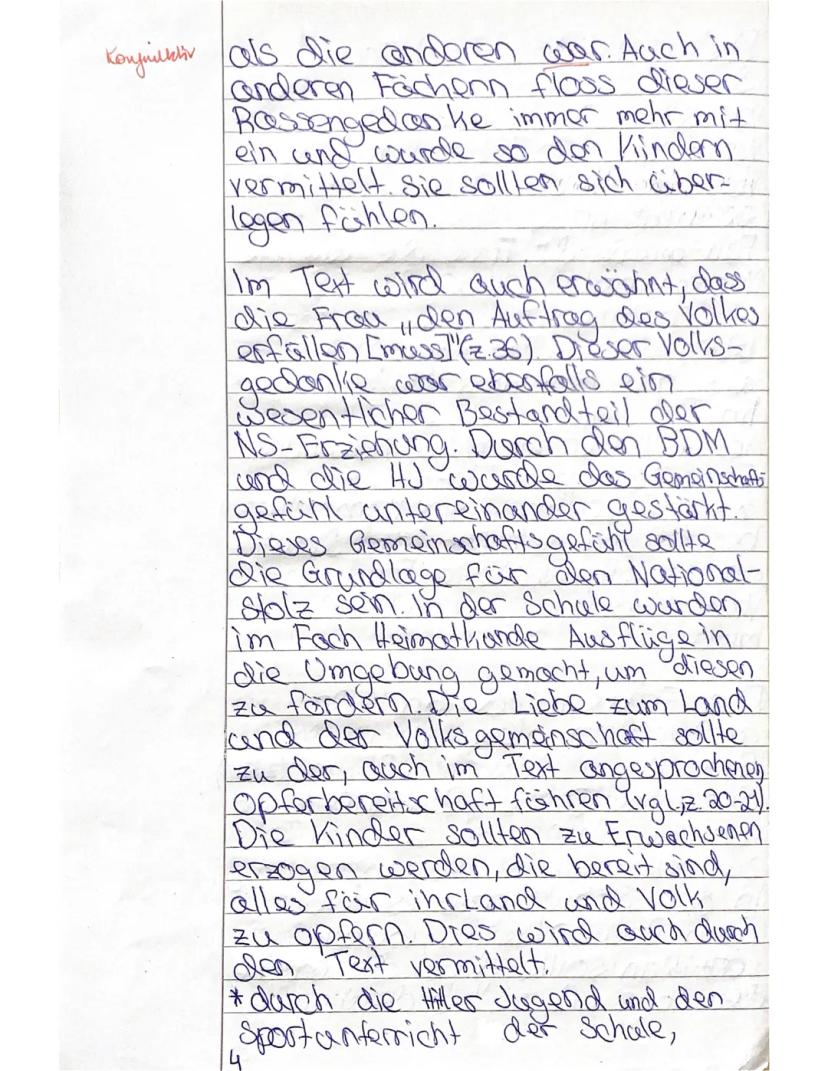 Konjunktiv
als die anderen war. Auch in
anderen Fächern floss dieser
Rassengedanke immer mehr mit
ein und wurde so den Kindern
vermittelt. Sie sollten sich über-
legen fühlen.
Im Text wird auch erwähnt, dass
die Frau „den Auftrag des Volkes
erfüllen [muss]"(z.36). Dieser Volks-
gedanke war ebenfalls ein
wesentlicher Bestandteil der
NS-Erziehung. Durch den BDM
und die HJ wurde das Gemeinschafts
gefühl untereinander gestärkt.
Dieses Gemeinschaftsgefühl sollte
die Grundlage für den National-
stolz sein. In der Schule wurden
im Fach Heimatkunde Ausflüge in
die Umgebung gemacht, um diesen
zu fördern. Die Liebe zum Land
und der Volksgemeinschaft sollte
zu der, auch im Text angesprochenen
Opferbereitschaft führen (vgl., z.20-21).
Die Kinder sollten zu Erwachsenen
erzogen werden, die bereit sind,
alles für ihr Land und Volk
zu opfern. Dies wird auch durch
den Text vermittelt.
* durch die Hitler Jugend und den
Sportunterricht der Schule,
4